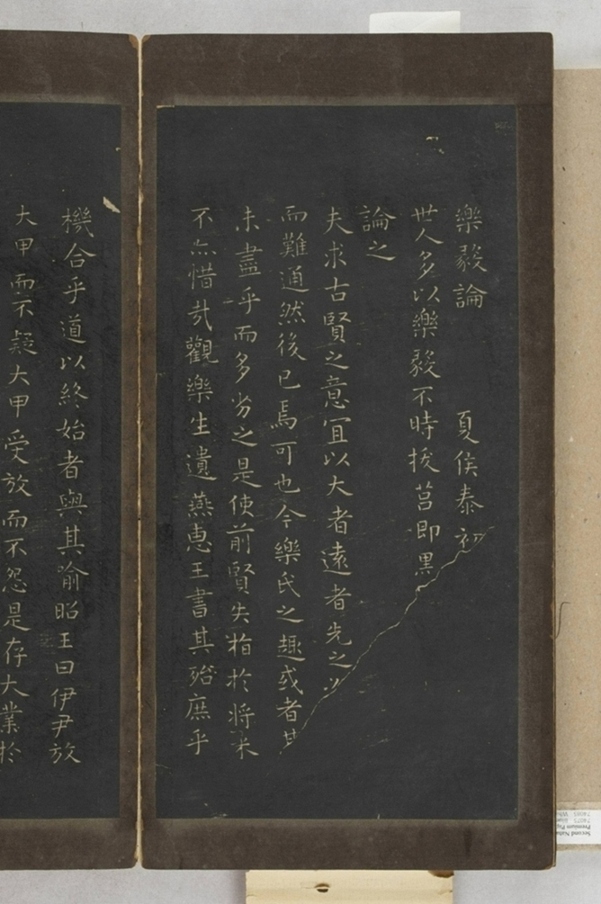 樂毅論　夏侯泰初
世人多以樂毅不時拔莒即
論之
夫求古賢之意宜以大者遠者先之
而難通然後已焉可也今樂氏之趣或者
未盡乎而多劣之是使前賢失指於將來
不亦惜哉觀樂生遺燕惠王書其殆庶乎
機合乎道以終始者與其喻昭王曰伊尹放
大甲而不疑大甲受放而不怨是存大業於